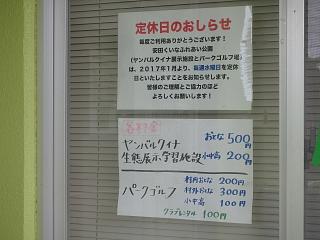 定休日のおしらせ
毎度ご利用ありがとうございます!
安田くいなふれあい公園
(ヤンバルクイナ展示施設とパークゴルフ場)
は、2017年1月より、毎週水曜日を定休
日といたしますことをお知らせします。
皆様のご理解とご協力のほど
よろしくお願いします!
ヤンバルクイナ おとな 500円
生態展示学習施設 小中高 200円
パークゴルフ 村内おとな 200円
村外おとな 300円
小中高 100円
クラブレンタル 100円